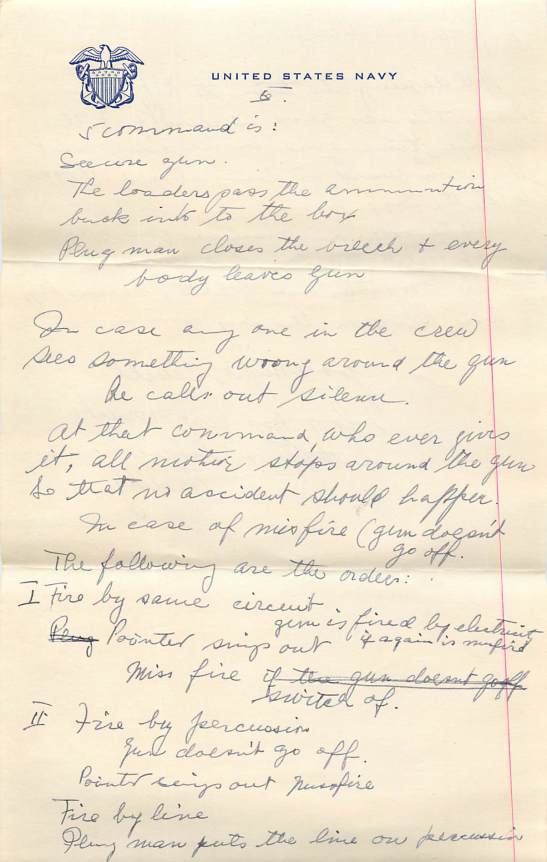 UNITED STATES NAVY
5.
5 command is:
Secure gun.
The loaders pass the ammunition
back into to the box
Plug man closes the breech + every
body leaves gun
In case any one in the crew
sees something wrong around the gun
he calls out silence.
At that command, who ever gives
it, all motion stops around the gun
so that no accident should happen.
In case of misfire (gun doesn't
go off.
The following are the orders:
I Fire by same circuit
gun is fired by electricity
Plug Pointer sings out if again is misfired
Miss fire if the gun doesn't go off
switch of.
II Fire by percussion
gun doesn't go off.
Pointer sings out misfire
Fire by line
Plug man puts the line on percussion